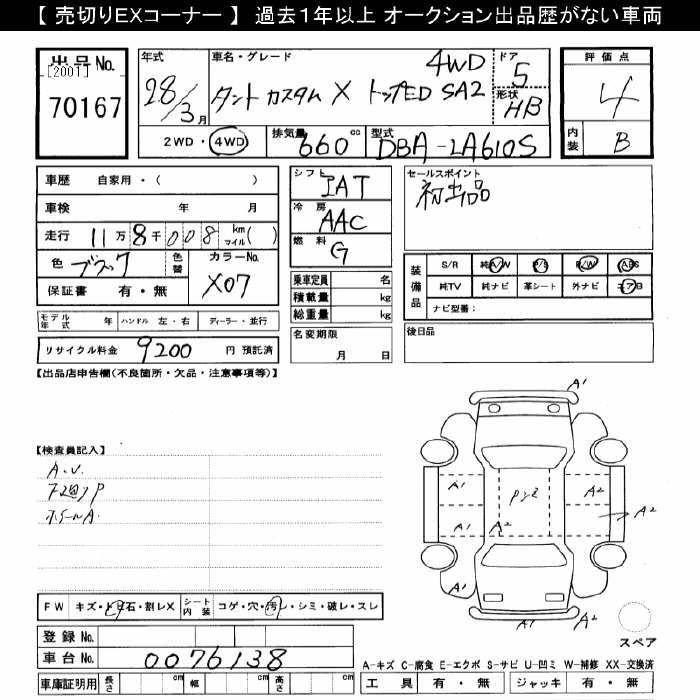 【 売切りEXコーナー 】 過去１年以上 オークション出品歴がない車両
出品No.
[2001]
70167
年式
28/3月
車名・グレード
タント カスタム X トップED SA2
4WD
ドア
5
形状
HB
2WD・4WD
排気量
660cc
型式
DBA-LA610S
評価点
4
内装
B
車歴 自家用・( )
車検 年 月
走行 11万8千008 km マイル( )
色 ブラック
色替
カラーNo.
X07
保証書 有・無
モデル年式 年 ハンドル 左・右 ディーラー・並行
リサイクル料金 9200 円 預託済
シフト
IAT
冷房
AAC
燃料
G
乗車定員 名
積載量 kg
総重量 kg
名変期限
月 日
セールスポイント
初出品
装備品
S/R 純A/W P/S R/W ABS
純TV 純ナビ 革シート 外ナビ エアB
ナビ型番：
後日品
【出品店申告欄(不良個所・欠品・注意事項等)】
【検査員記入】
A.U.
下廻りP
ホイールA.
A1
A1
A2
A1
A2
A2
A1
A2
FW キズ・トビ石・割レX
シート内装 コゲ・穴・汚レ・シミ・破レ・スレ
スペア
登録No.
車台No. 0076138
A-キズ C-腐食 E-エクボ S-サビ U-凹ミ W-補修 XX-交換済
車庫証明用 長さ cm 幅 cm 高さ cm
工具 有・無 ジャッキ 有・無